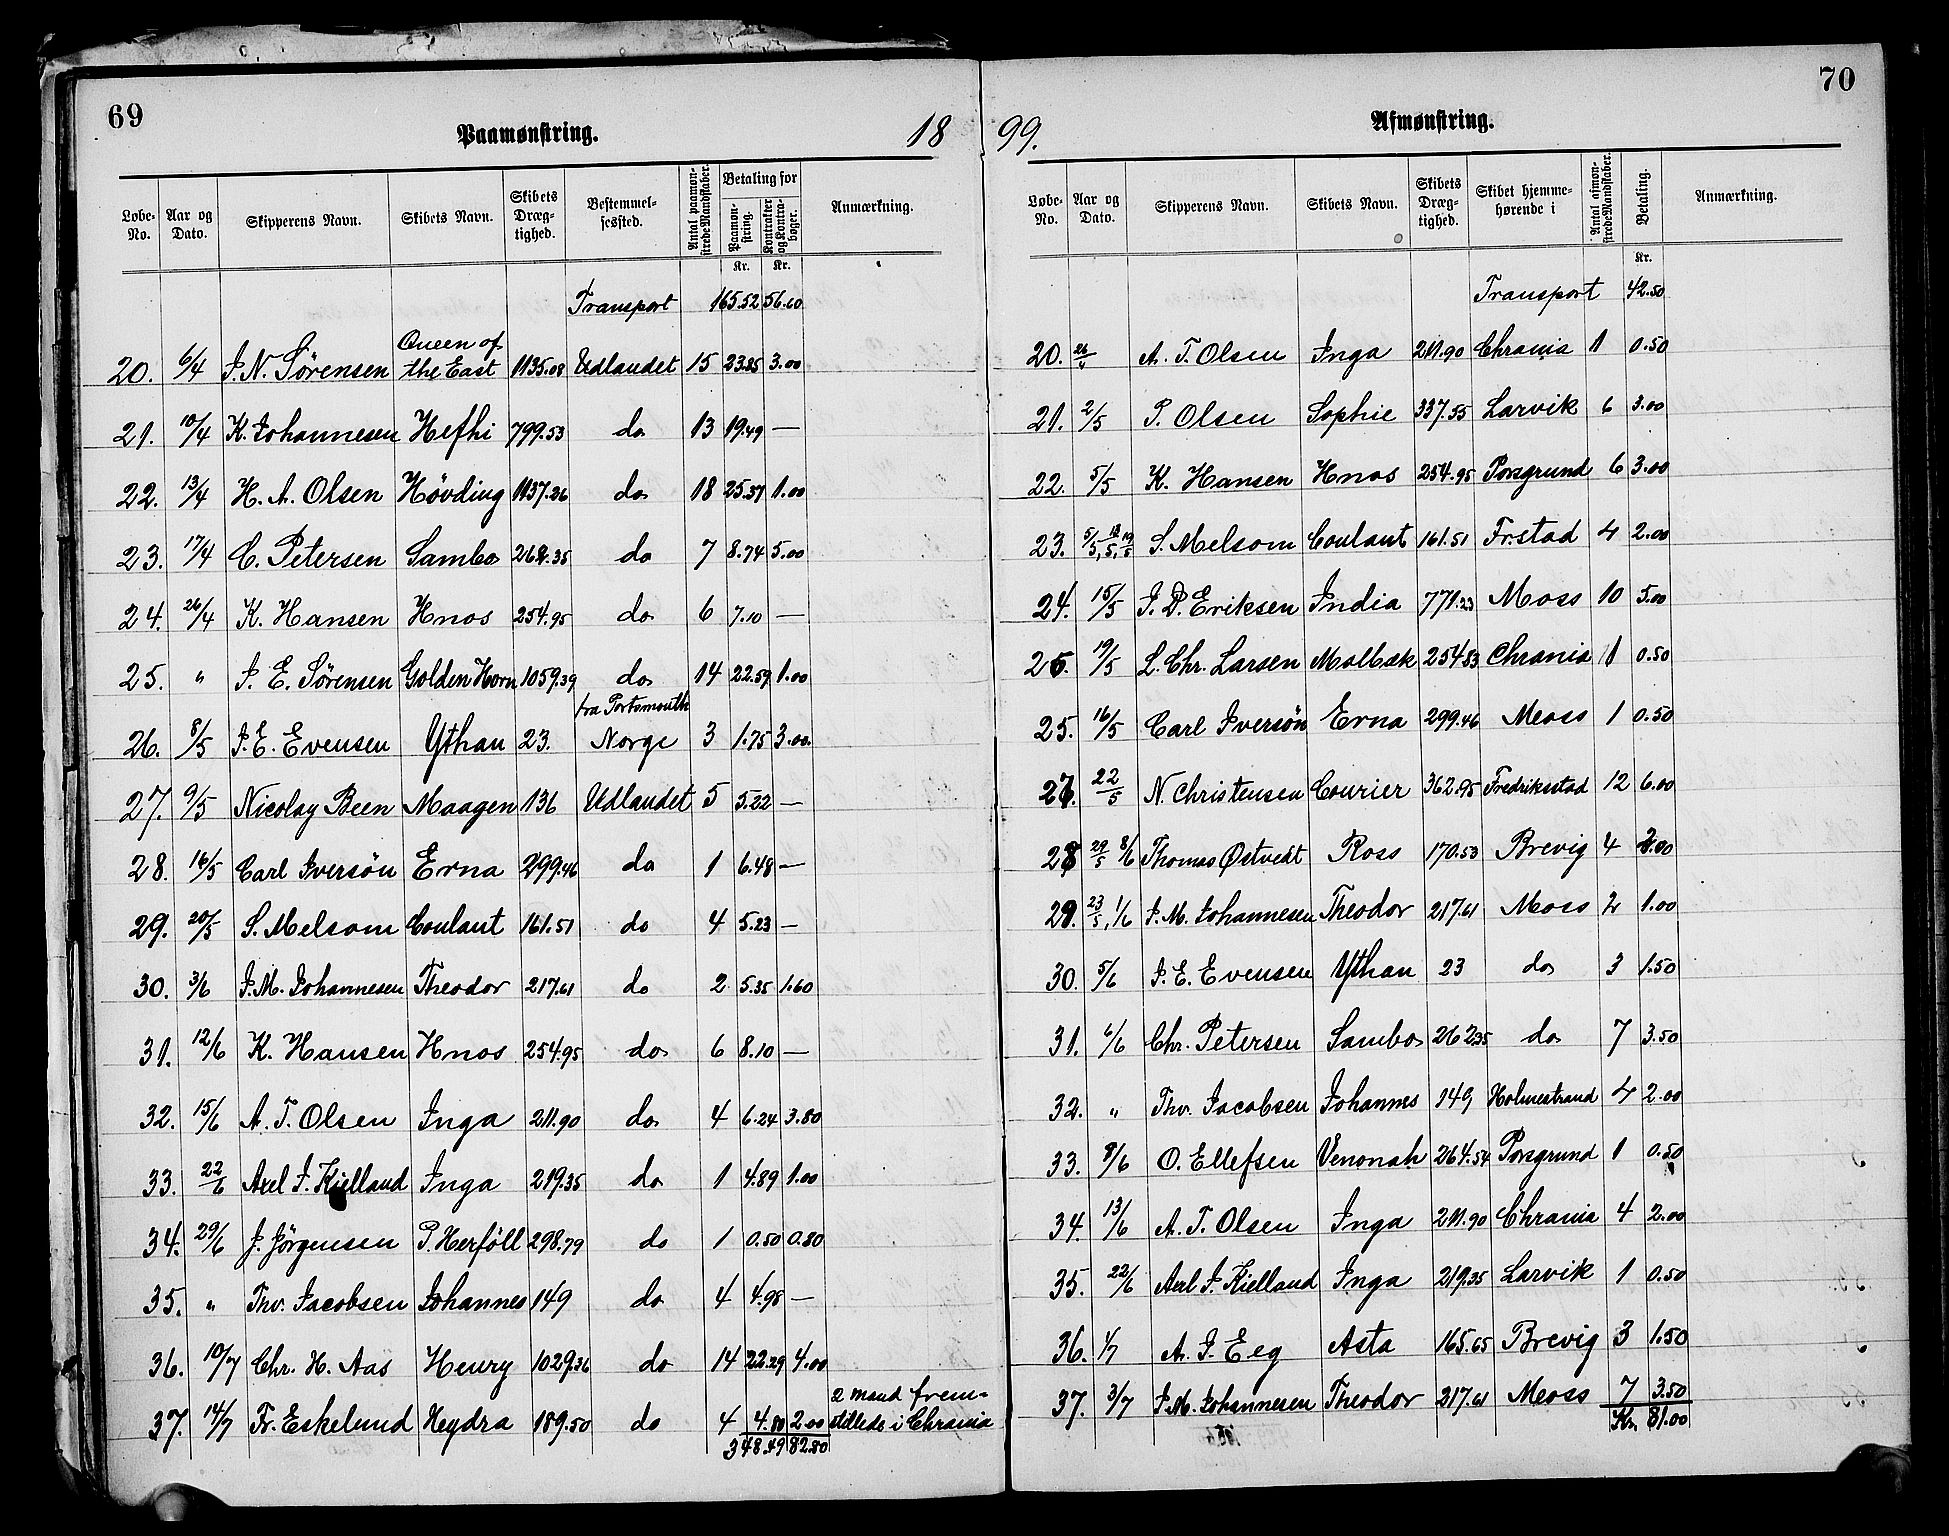 69
Paamønstring.
18
Løbe-No. Aar og Dato. Skipperens Navn. Skibets Navn. Skibets Dræg-tighed. Bestemmel-sessted. Antal paamøn-strede Mandskaber. Betaling for Paamøn-string. Kontrakter og Kontra-bøger. Anmærkning.
Kr. Kr.
Transport 165.52 56.60
20. 6/4 J. N. Sörensen Queen of the East 1135.08 Udlandet 15 23.85 3.00
21. 10/4 K. Johannesen Hefhi 799.53 do 13 19.49 —
22. 13/4 H. A. Olsen Hövding 1137.26 do 18 25.37 1.00
23. 17/4 C. Petersen Sambo 262.35 do 7 8.74 5.00
24. 26/4 K. Hansen Hnos 254.95 do 6 7.10 —
25. " J. E. Sörensen Golden Horn 1059.39 do 14 22.59 1.00
26. 8/5 J. E. Evensen Ythan 23. fra Portsmouth Norge 3 1.75 3.00
27. 9/5 Nicolay Been Maagen 136 Udlandet 5 5.22 —
28. 16/5 Carl Iversön Erna 299.46 do 1 6.48 —
29. 20/5 S. Melsom Coulant 161.51 do 4 5.23 —
30. 3/6 J. M. Johannesen Theodor 217.61 do 2 5.35 1.60
31. 12/6 K. Hansen Hnos 254.95 do 6 8.10 —
32. 15/6 A. T. Olsen Inga 211.90 do 4 6.24 3.80
33. 22/6 Axel J. Kielland Inga 219.35 do 1 4.89 1.00
34. 29/6 J. Jörgensen P. Herföll 298.79 do 1 0.50 0.80
35. " Thv. Jacobsen Johannes 149 do 4 4.98 —
36. 10/7 Chr. H. Aas Henry 1029.36 do 14 22.29 4.00
37. 14/7 Fr. Eskelund Heydra 189.50 do 4 4.80 2.00 2 mand frem-stillede i Chrania
348.49 82.80
70
Afmønstring.
99.
Løbe-No. Aar og Dato. Skipperens Navn. Skibets Navn. Skibets Dræg-tighed. Skibet hjemme-hørende i Antal afmøn-strede Mandskaber. Betaling. Anmærkning.
Kr.
Transport 42.50
20. 26/4 A. T. Olsen Inga 211.90 Chrania 1 0.50
21. 2/5 P. Olsen Sophie 337.55 Larvik 6 3.00
22. 5/5 K. Hansen Hnos 254.95 Porsgrund 6 3.00
23. 5/5, S. Melsom Coulant 161.51 Frstad 4 2.00
24. 15/5 J. D. Eriksen India 771.23 Moss 10 5.00
26. 19/5 L. Chr. Larsen Molbæk 254.83 Chrania 1 0.50
25. 16/5 Carl Iversön Erna 299.46 Moss 1 0.50
27. 22/5 N. Christensen Courier 362.95 Fredriksstad 12 6.00
28 29/5 8/6 Thomas Østvedt Ross 170.53 Brevig 4 2.00
29. 23/5, 1/6 J. M. Johannesen Theodor 217.61 Moss 2 1.00
30. 5/6 J. E. Evensen Ythan 23 do 3 1.50
31. 6/6 Chr. Petersen Sambo 262.35 do 7 3.50
32. " Thv. Jacobsen Johannes 149 Holmestrand 4 2.00
33. 8/6 O. Ellefsen Venonah 264.54 Porsgrund 1 0.50
34. 13/6 A. T. Olsen Inga 211.90 Chrania 4 2.00
35. 22/6 Axel J. Kielland Inga 219.35 Larvik 1 0.50
36. 1/7 A. J. Eeg Asta 165.65 Brevig 3 1.50
37. 3/7 J. M. Johannesen Theodor 217.61 Moss 7 3.50
Kr. 81.00